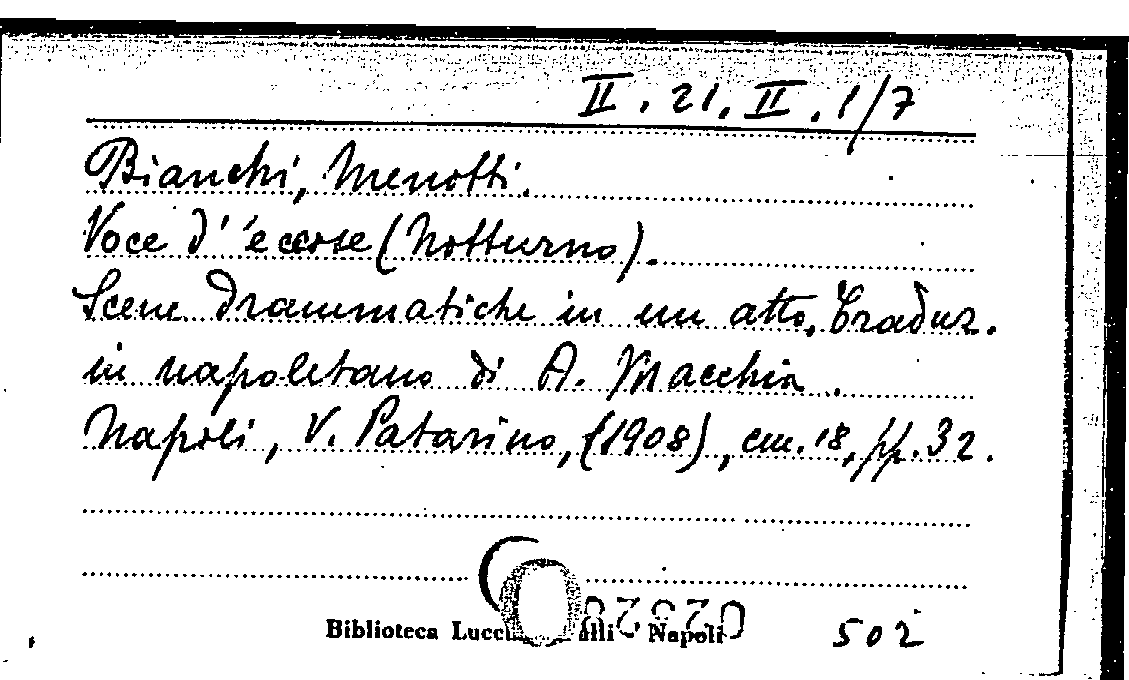 II. 21. II. 1/7
Bianchi, Menotti.
Voce d' 'e ccose (Notturno).
Scene drammatiche in un atto. Traduz.
in napoletano di A. Macchia.
Napoli, V. Patarino, (1908), cm. 18, pp. 32.
Biblioteca Napoli
502